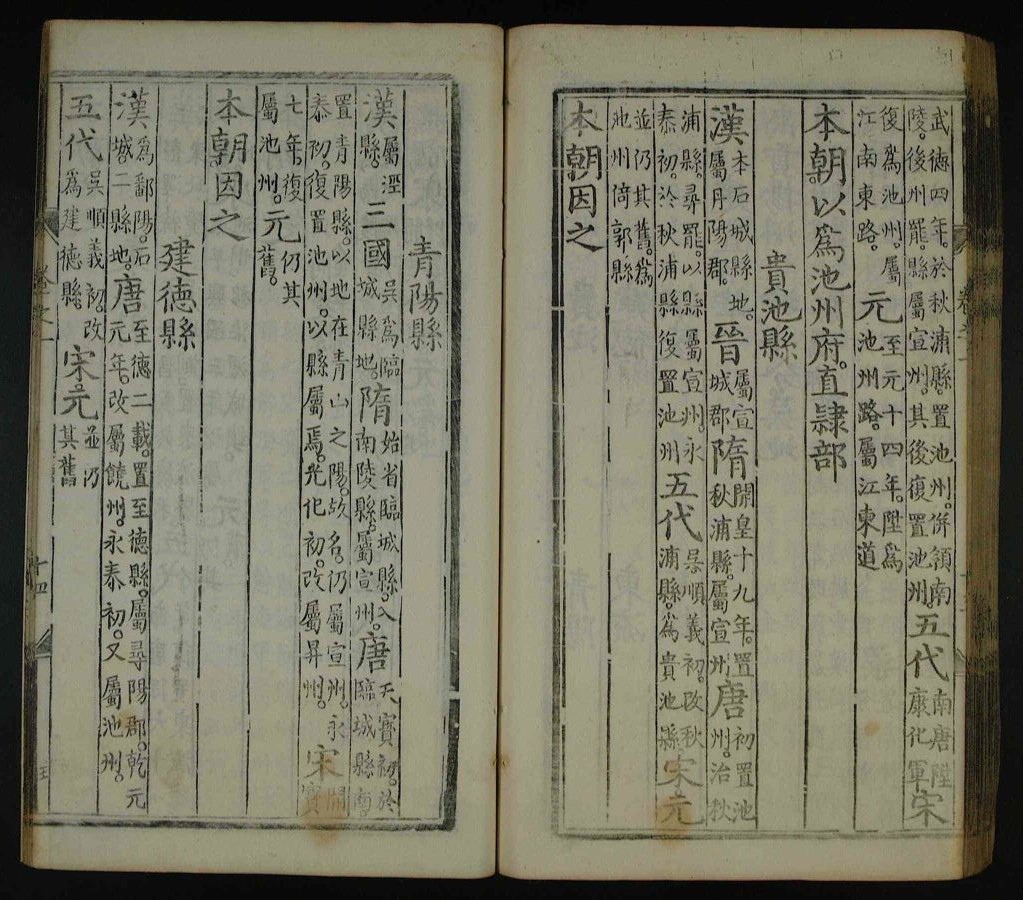 武德四年。於秋浦縣。置池州。併領南陵。後州罷。縣屬宣州。其後復置池州。五代南唐陞康化軍宋
復爲池州。屬江南東路。元至元十四年。陞爲池州路。屬江東道
本朝。以爲池州府。直隷部
貴池縣
漢本石城縣地。屬丹陽郡。晉屬宣城郡隋開皇十九年。置秋浦縣。屬宣州唐初置池州。治秋
浦縣。尋罷。以縣屬宣州。永泰初。於秋浦縣復置池州五代吴順義初。改秋浦縣。爲貴池縣宋元
並仍其舊。爲池州倚郭縣
本朝因之
青陽縣
漢屬涇縣。三國吳爲臨城縣地。隋始省臨城縣。入南陵縣。屬宣州。唐天寶初。於臨城縣南。
置青陽縣。以地在青山之陽。故名。仍屬宣州。永泰初。復置池州。以縣屬焉。光化初。改屬昇州。宋開寶
七年。復屬池州。元仍其舊。
本朝因之
建德縣
漢爲鄱陽。石城二縣地。唐至德二載。置至德縣。屬尋陽郡。乾元元年。改屬饒州。永泰初。又屬池州。
五代吳順義初。改爲建德縣。宋元並仍其舊
卷之一
十四